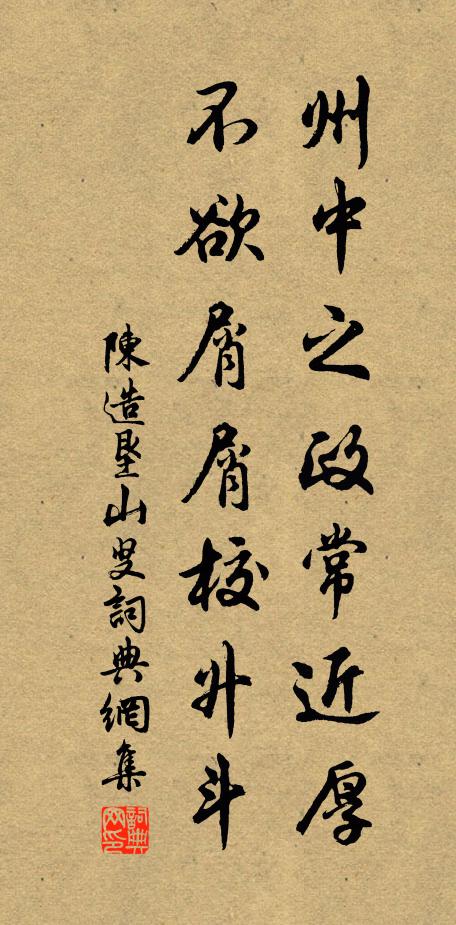 州中之政常近厚
不欲屑屑校升斗
陳造墾山叟詞典網集
詞典
网印